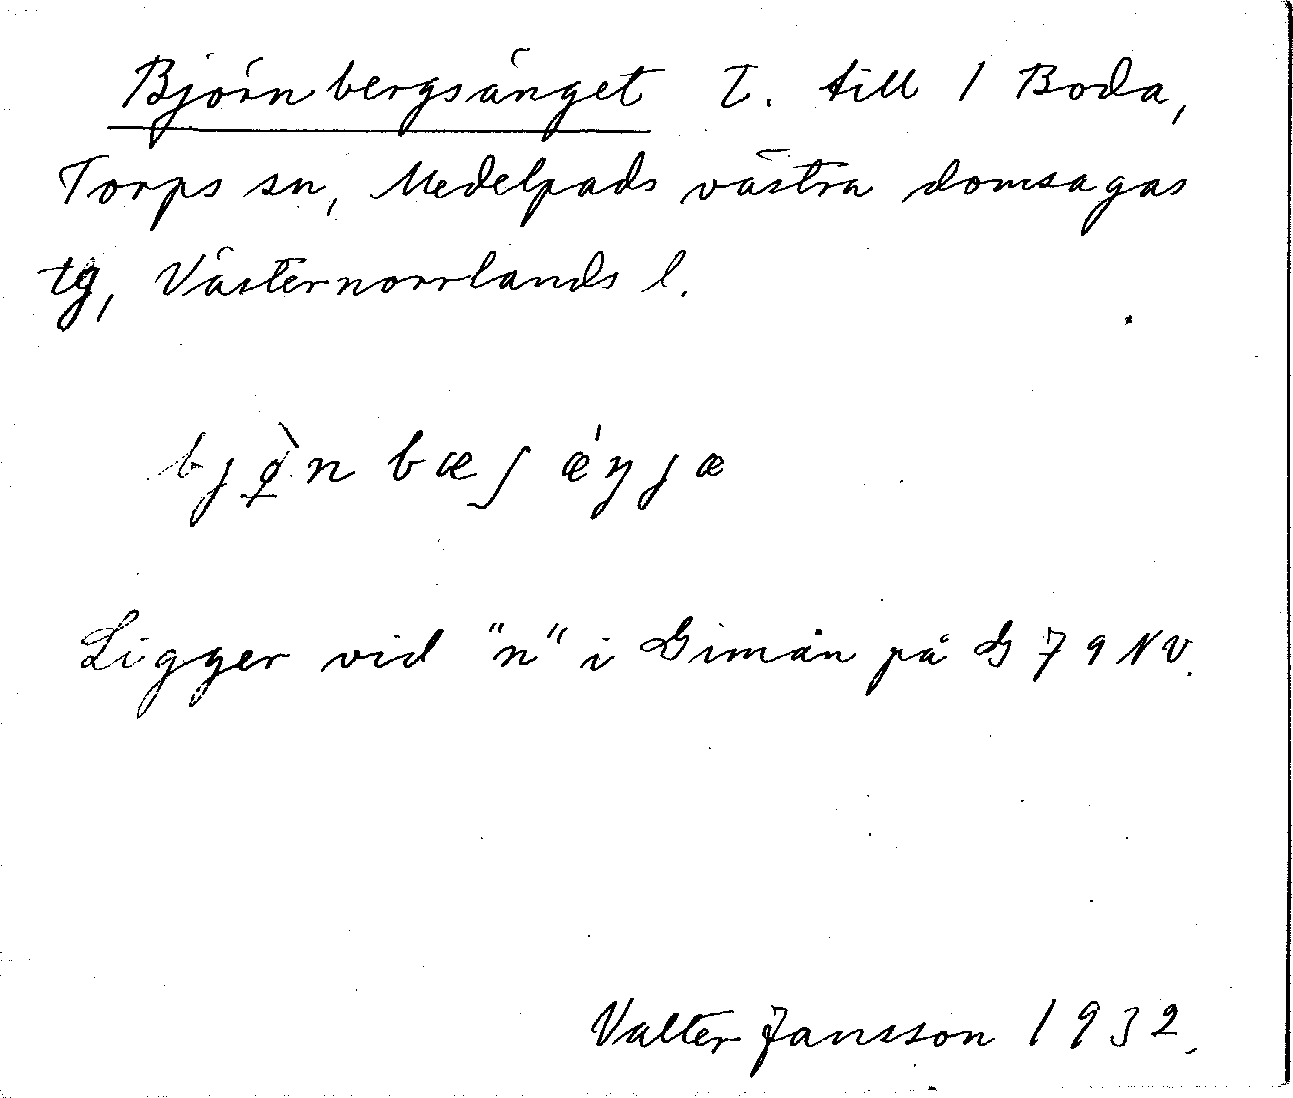 Björnbergsänget T. till 1 Boda,
Torps sn, Medelpads västra domsagas
tg, Västernorrlands l.
bjø̀n bæʃ ǽŋjæ
Ligger vid "n" i Gimån på G 79 NV.
Valter Jansson 1932.